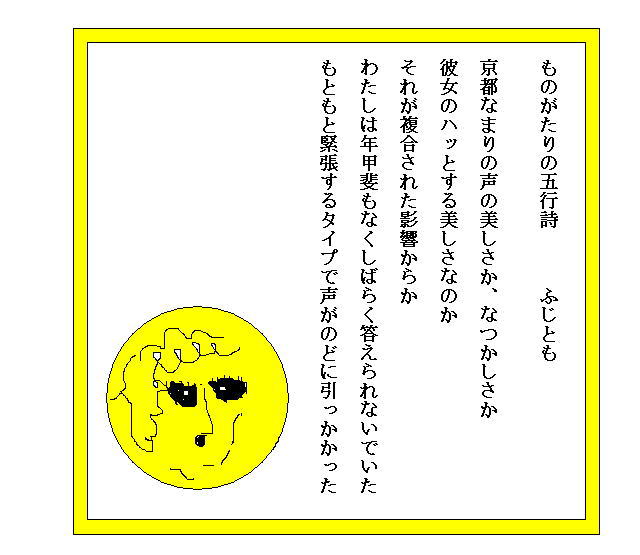 ものがたりの五行詩　　　ふじとも
京都なまりの声の美しさか、なつかしさか
彼女のハッとする美しさなのか
それが複合された影響からか
わたしは年甲斐もなくしばらく答えられないでいた
もともと緊張するタイプで声がのどに引っかかった